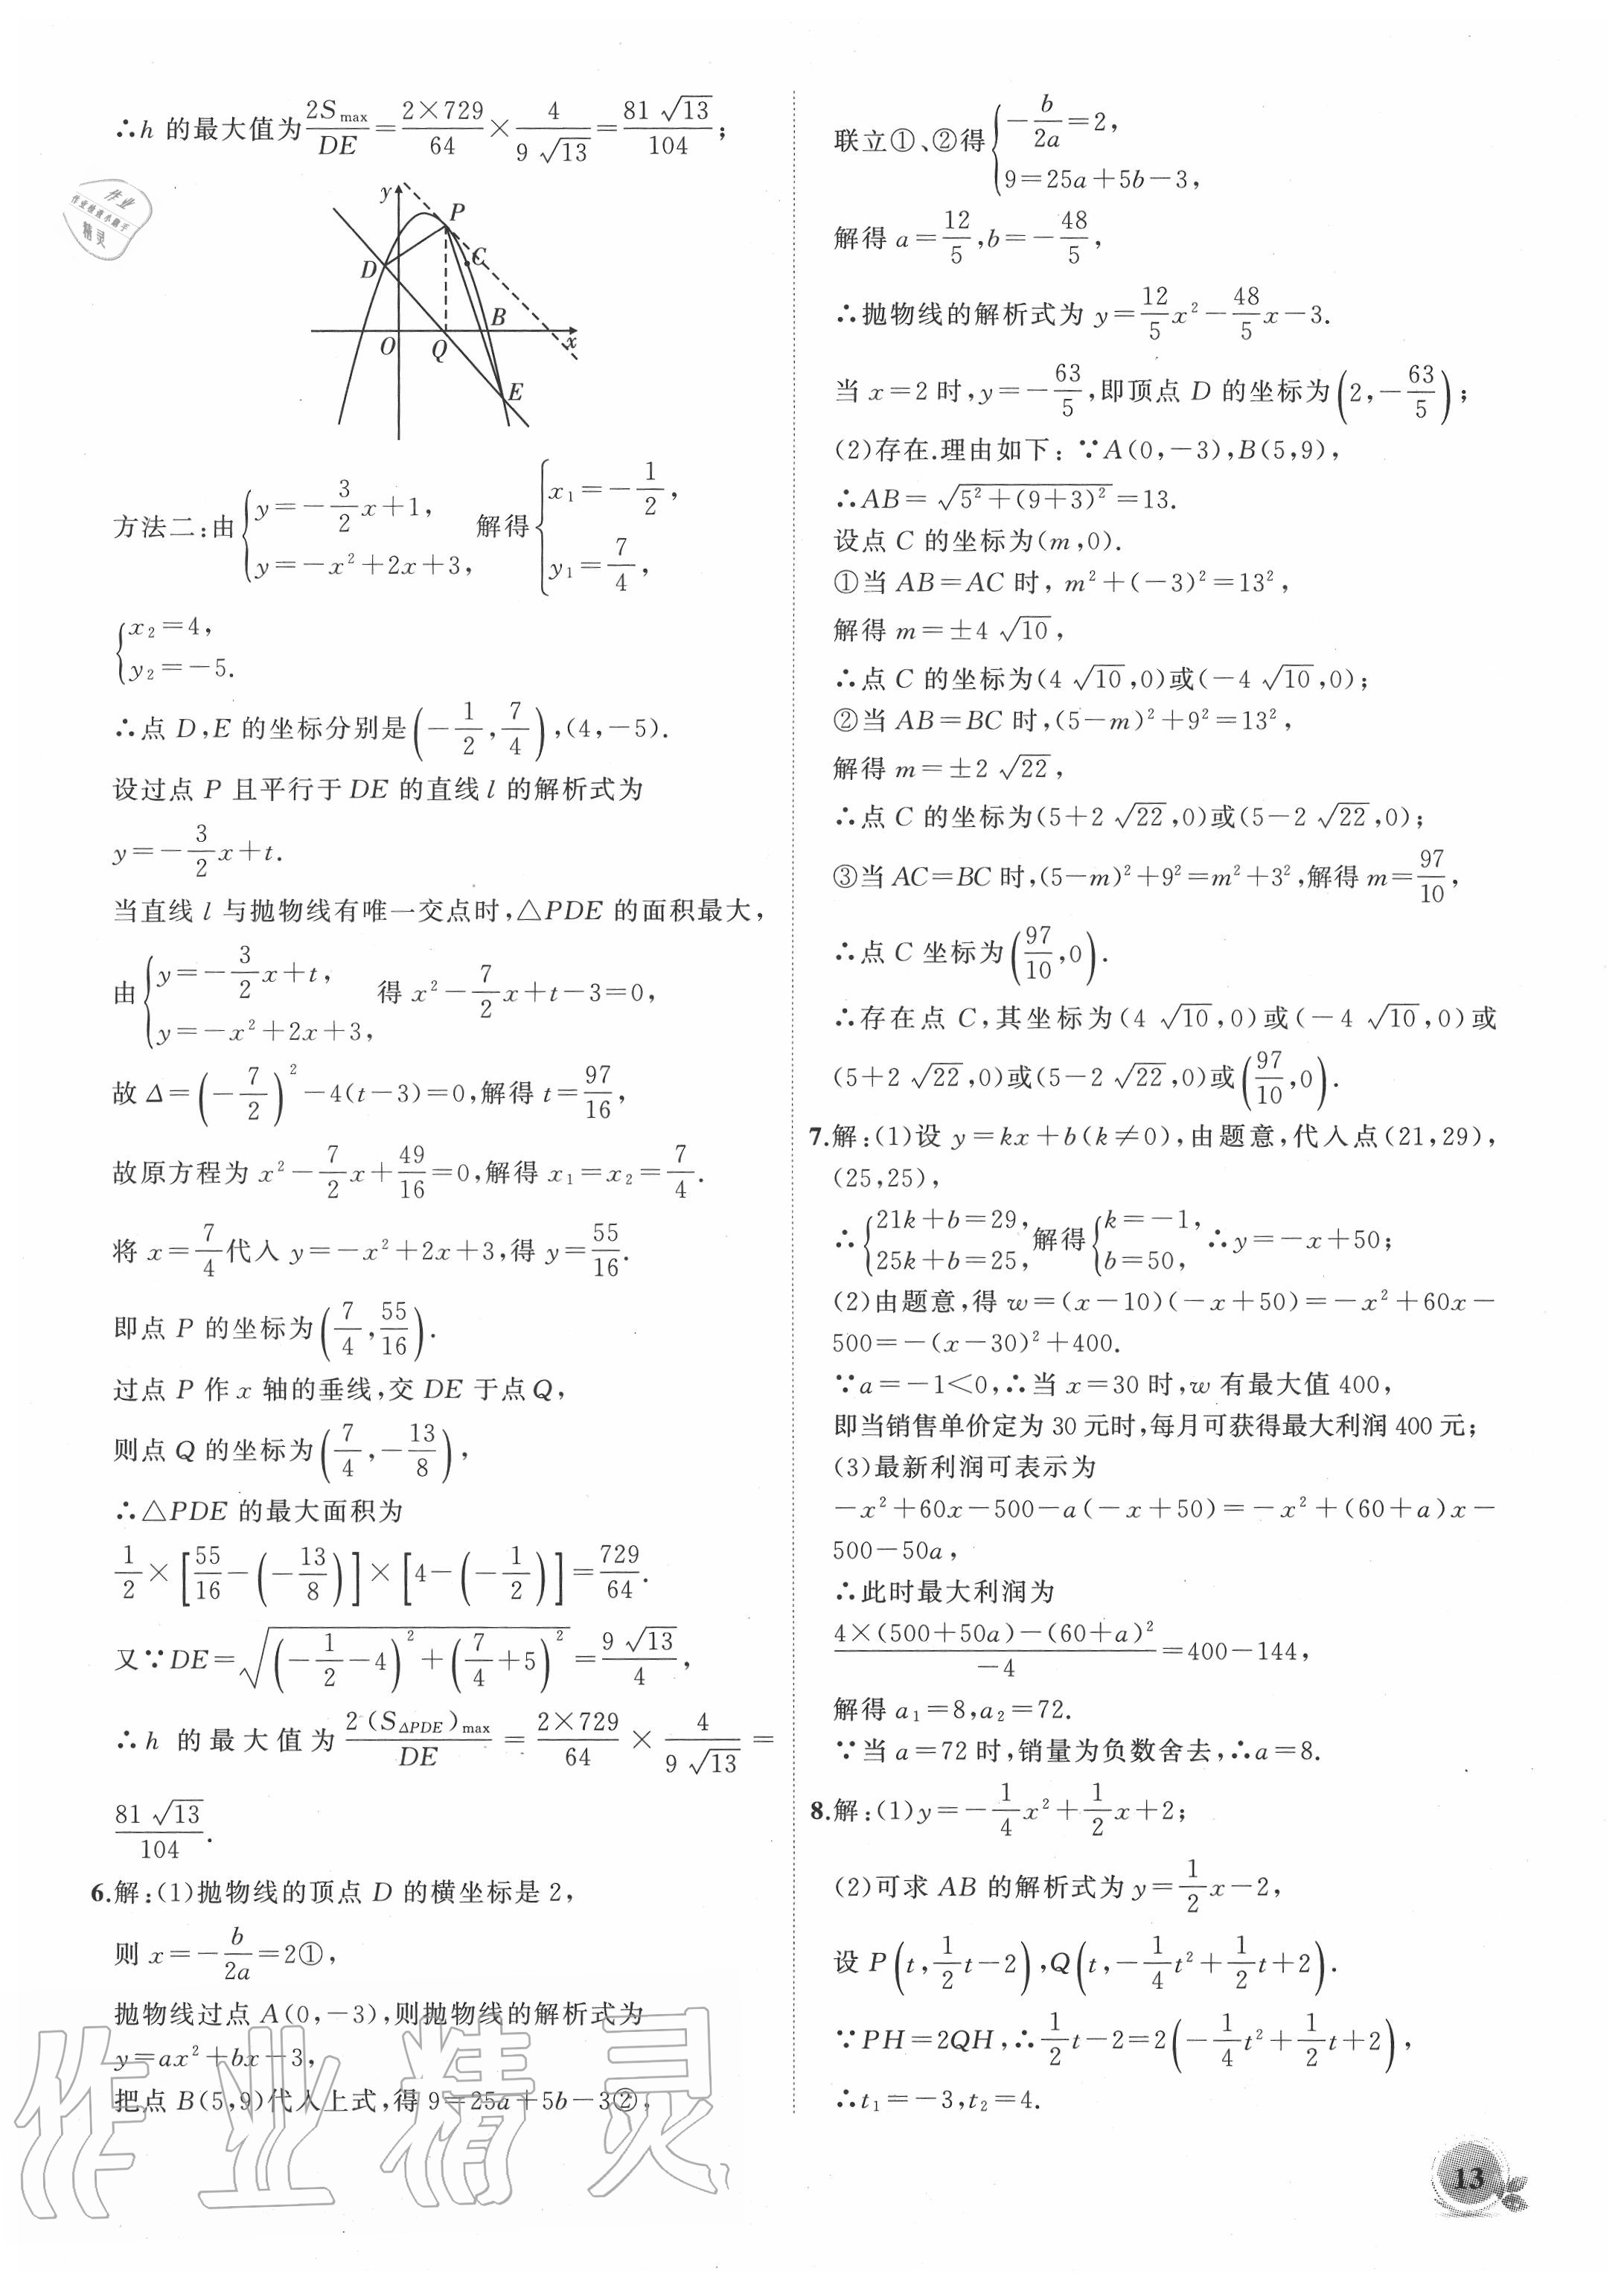 ∴h 的最大值为 2S_max/DE = (2×729)/64 × 4/(9√13) = 81√13/104;
作业
作业检查小助手
精灵
y
P
D
C
B
O
Q
x
E
方法二:由{y=-3/2x+1, y=-x²+2x+3, 解得{x₁=-1/2, y₁=7/4,
{x₂=4, y₂=-5.
∴点 D,E 的坐标分别是(-1/2, 7/4),(4,-5).
设过点 P 且平行于 DE 的直线 l 的解析式为
y=-3/2x+t.
当直线 l 与抛物线有唯一交点时,△PDE 的面积最大,
由{y=-3/2x+t, y=-x²+2x+3, 得 x²-7/2x+t-3=0,
故 Δ=(-7/2)²-4(t-3)=0,解得 t=97/16,
故原方程为 x²-7/2x+49/16=0,解得 x₁=x₂=7/4.
将 x=7/4代入 y=-x²+2x+3,得 y=55/16.
即点 P 的坐标为(7/4, 55/16).
过点 P 作 x 轴的垂线,交 DE 于点 Q,
则点 Q 的坐标为(7/4, -13/8),
∴△PDE 的最大面积为
1/2×[55/16-(-13/8)]×[4-(-1/2)]=729/64.
又∵DE=√((-1/2-4)²+(7/4+5)²)=9√13/4,
∴h 的最大值为 2(S_△PDE)_max/DE = (2×729)/64 × 4/(9√13) =
81√13/104.
6.解:(1)抛物线的顶点 D 的横坐标是 2,
则 x=-b/2a=2①,
抛物线过点 A(0,-3),则抛物线的解析式为
y=ax²+bx-3,
把点 B(5,9)代入上式,得 9=25a+5b-3②,
联立①、②得{-b/2a=2, 9=25a+5b-3,
解得 a=12/5,b=-48/5,
∴抛物线的解析式为 y=12/5x²-48/5x-3.
当 x=2 时,y=-63/5,即顶点 D 的坐标为(2,-63/5);
(2)存在.理由如下:∵A(0,-3),B(5,9),
∴AB=√(5²+(9+3)²)=13.
设点 C 的坐标为(m,0).
①当 AB=AC 时, m²+(-3)²=13²,
解得 m=±4√10,
∴点 C 的坐标为(4√10,0)或(-4√10,0);
②当 AB=BC 时,(5-m)²+9²=13²,
解得 m=±2√22,
∴点 C 的坐标为(5+2√22,0)或(5-2√22,0);
③当 AC=BC 时,(5-m)²+9²=m²+3²,解得 m=97/10,
∴点 C 坐标为(97/10,0).
∴存在点 C,其坐标为(4√10,0)或(-4√10,0)或
(5+2√22,0)或(5-2√22,0)或(97/10,0).
7.解:(1)设 y=kx+b(k≠0),由题意,代入点(21,29),
(25,25),
∴{21k+b=29, 25k+b=25, 解得{k=-1, b=50, ∴y=-x+50;
(2)由题意,得 w=(x-10)(-x+50)=-x²+60x-
500=-(x-30)²+400.
∵a=-1<0,∴当 x=30 时,w 有最大值 400,
即当销售单价定为 30 元时,每月可获得最大利润 400 元;
(3)最新利润可表示为
-x²+60x-500-a(-x+50)=-x²+(60+a)x-
500-50a,
∴此时最大利润为
(4×(500+50a)-(60+a)²)/-4=400-144,
解得 a₁=8,a₂=72.
∵当 a=72 时,销量为负数舍去,∴a=8.
8.解:(1)y=-1/4x²+1/2x+2;
(2)可求 AB 的解析式为 y=1/2x-2,
设 P(t,1/2t-2),Q(t,-1/4t²+1/2t+2).
∵PH=2QH,∴1/2t-2=2(-1/4t²+1/2t+2),
∴t₁=-3,t₂=4.
作业精灵
13